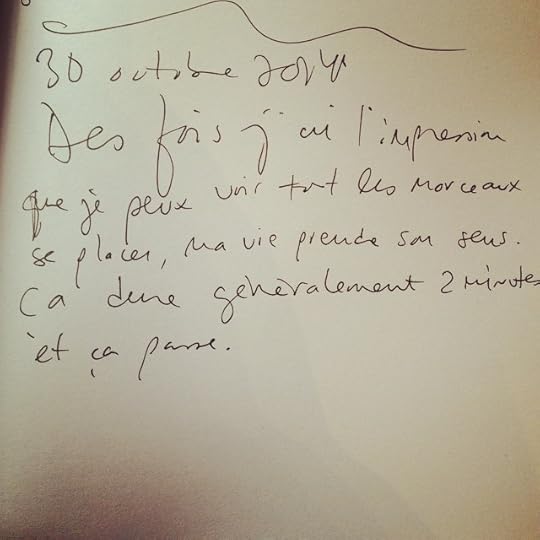 30 octobre 2014
Des fois j'ai l'impression
que je peux voir tout les morceaux
se placer, ma vie prendre son sens.
Ca dure généralement 2 minutes
et ça passe.